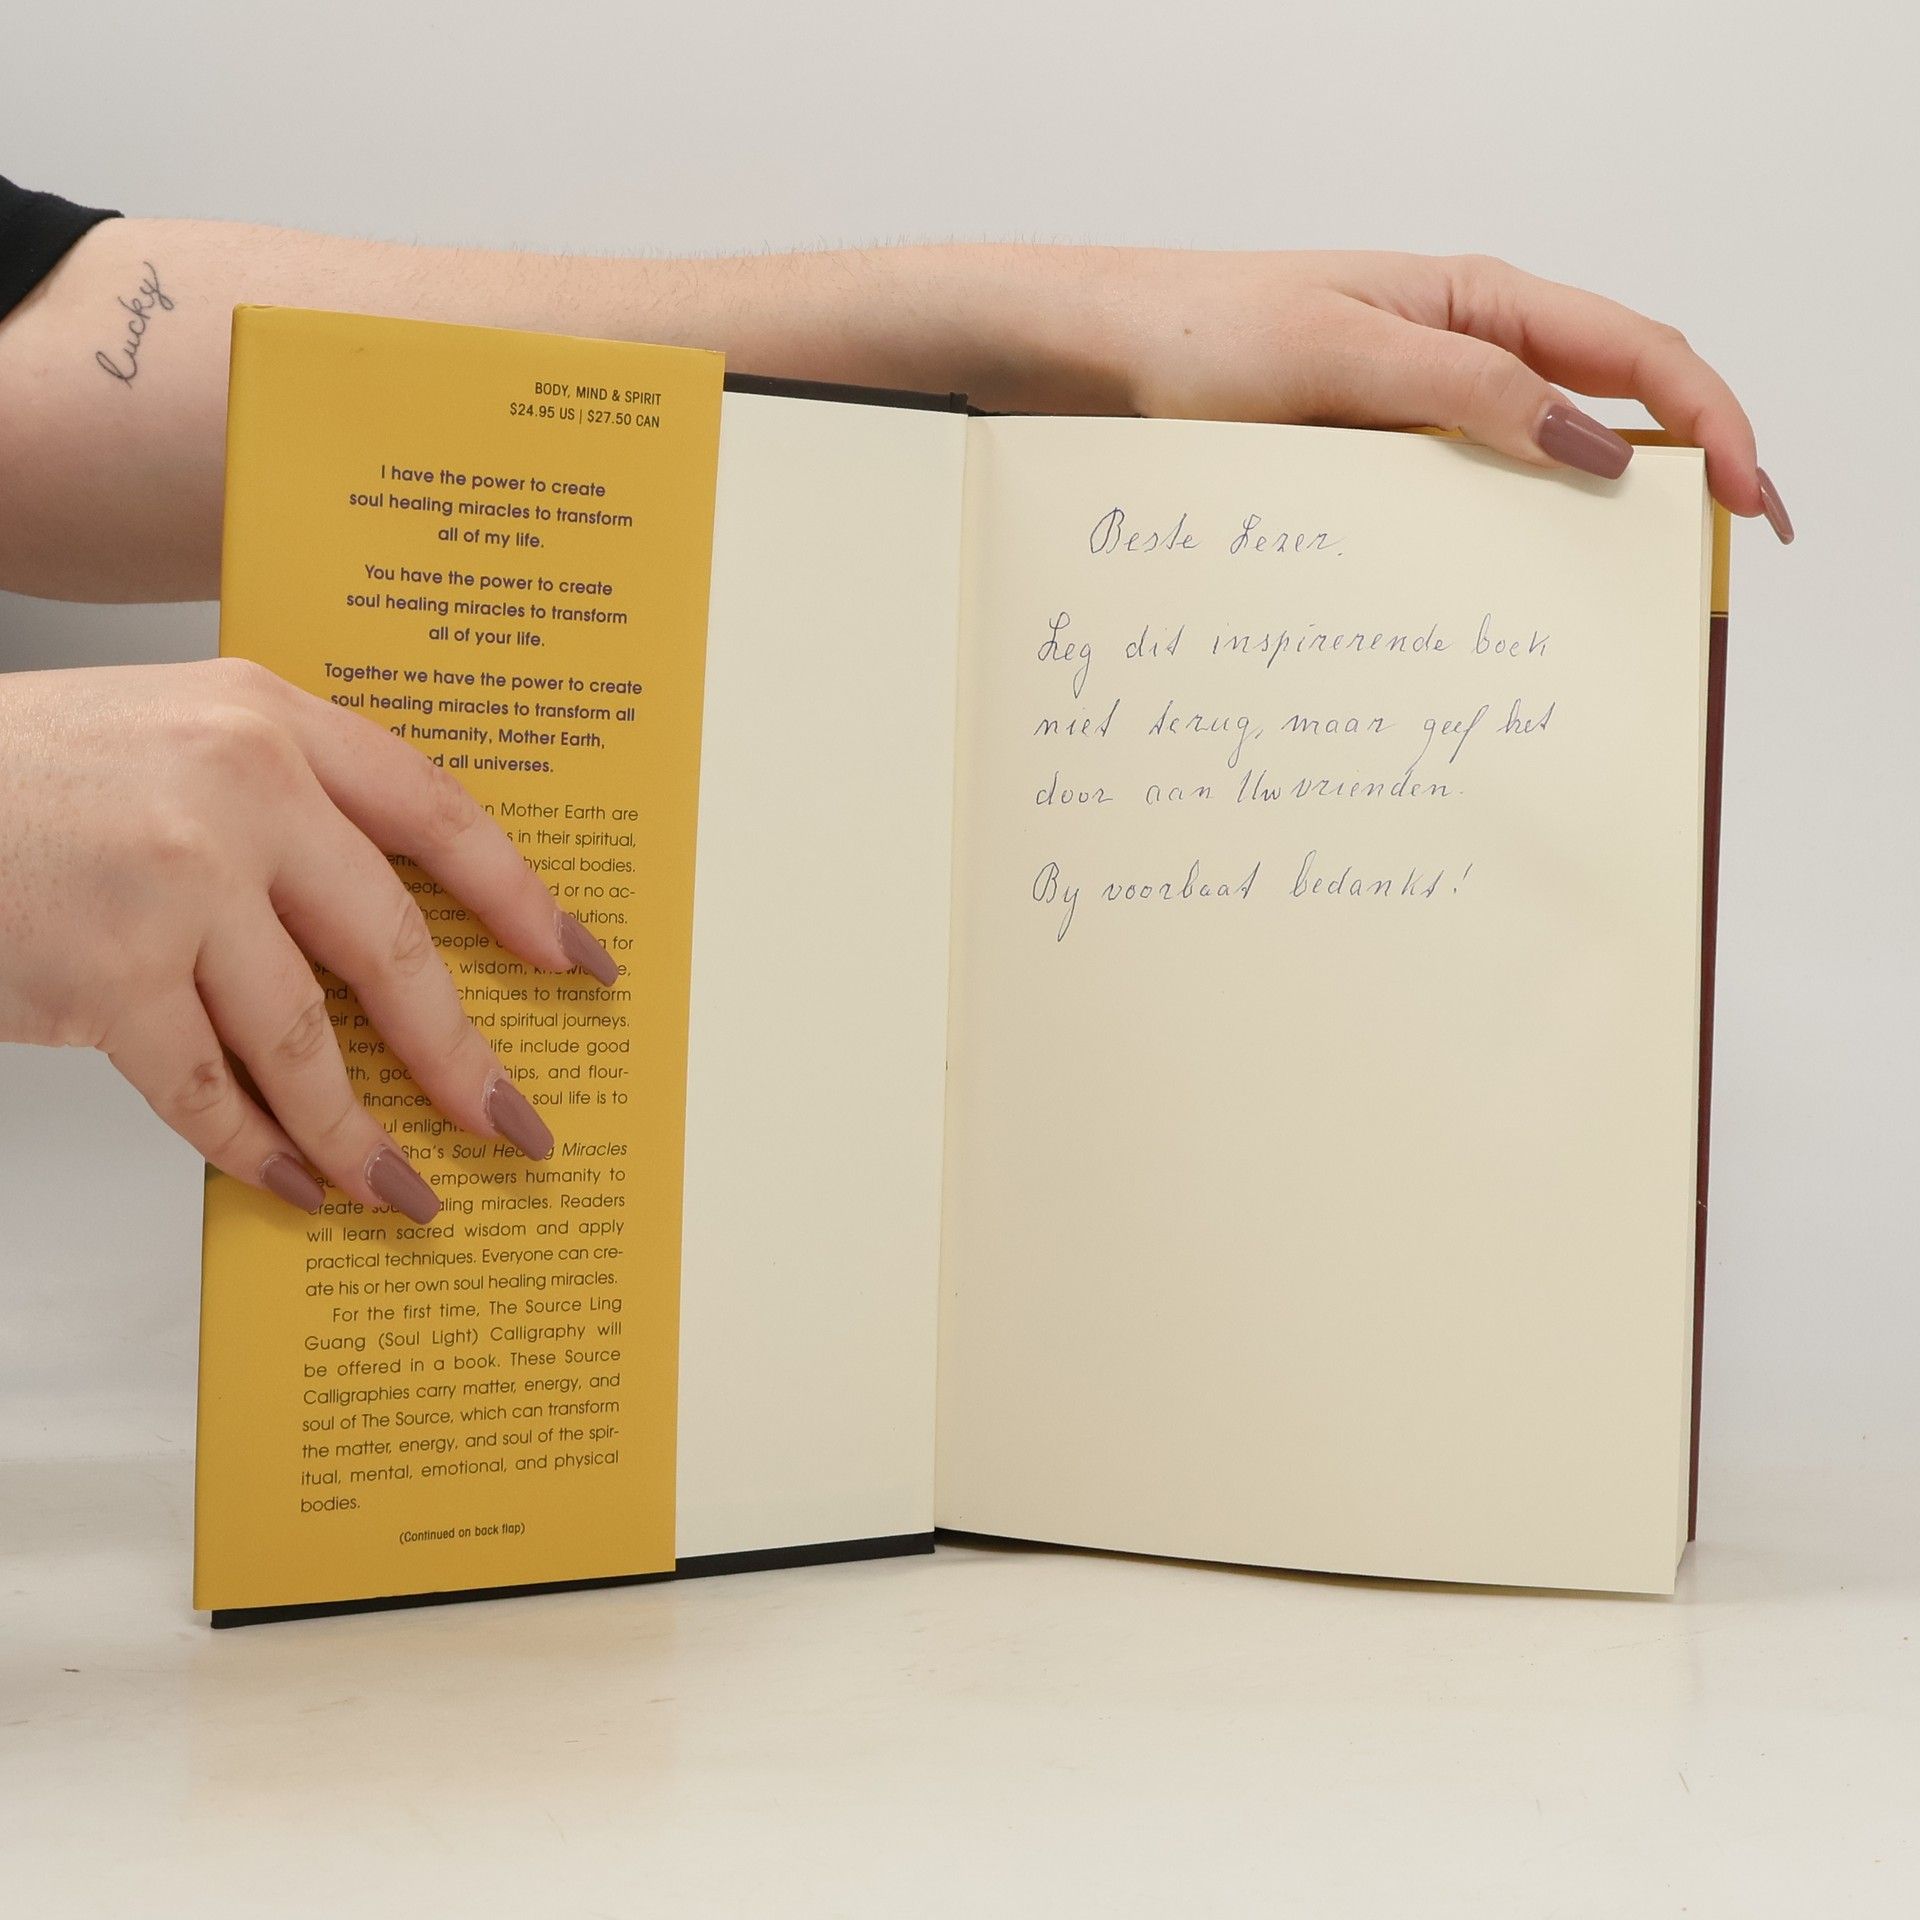 lucky
BODY, MIND & SPIRIT
$24.95 US | $27.50 CAN
I have the power to create
soul healing miracles to transform
all of my life.
You have the power to create
soul healing miracles to transform
all of your life.
Together we have the power to create
soul healing miracles to transform all
of humanity, Mother Earth,
all universes.
Mother Earth are
in their spiritual,
bodies.
or no ac-
people for
wisdom,
to transform
and spiritual journeys.
keys life include good
and flour-
finances soul life is to
Sha's Soul Miracles
empowers humanity to
create miracles. Readers
will learn sacred wisdom and apply
practical techniques. Everyone can cre-
ate his or her own soul healing miracles.
For the first time, The Source Ling
Guang (Soul Light) Calligraphy will
be offered in a book. These Source
Calligraphies carry matter, energy, and
soul of The Source, which can transform
the matter, energy, and soul of the spir-
itual, mental, emotional, and physical
bodies.
(Continued on back flap)
Beste Lezer.
Leg dit inspirerende boek
niet terug, maar geef het
door aan Uw vrienden.
By voorbaat bedankt!